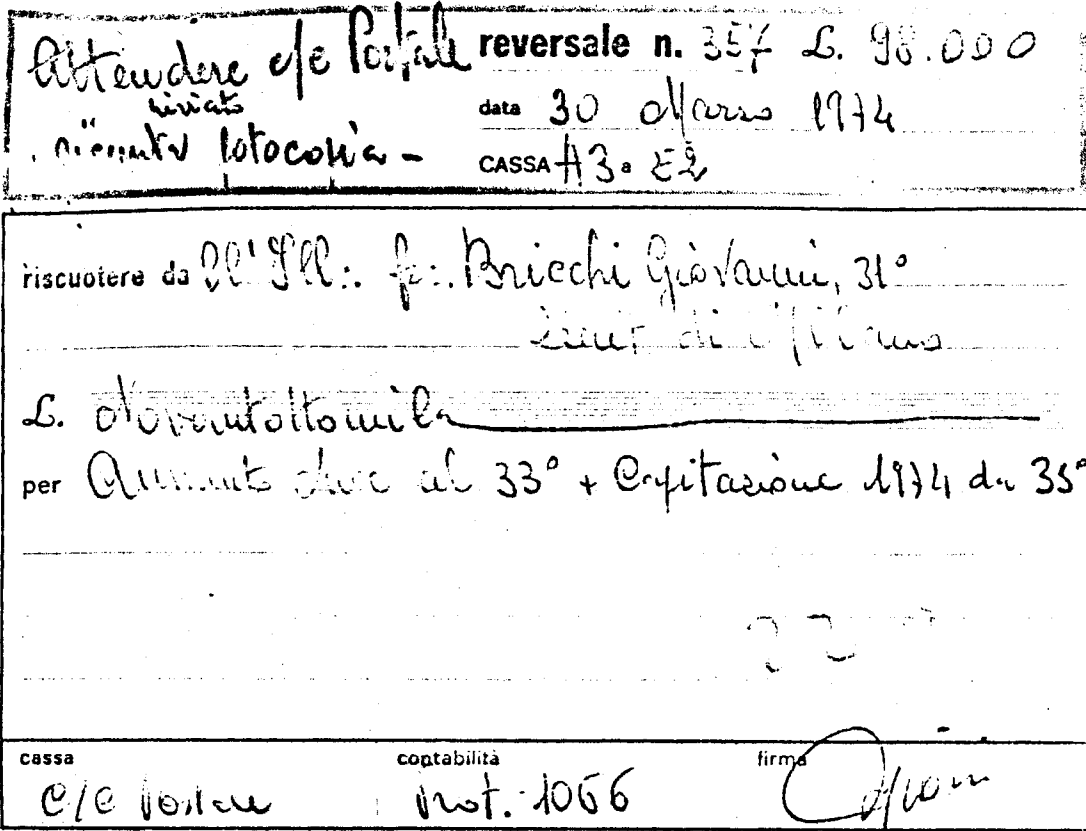 Attendere c/c Postale
inviato
ricevuta fotocopia -
reversale n. 357 L. 98.000
data 30 Marzo 1974
CASSA A3 a E2
riscuotere da Ill'Ill∴ fr∴ Bricchi Giovanni, 31°
di Milano
L. Novantottomila
per Aumento al 33° + Capitazione 1974 da 33°
33
cassa
contabilità
firma
C/C Postale
Prot. 1066